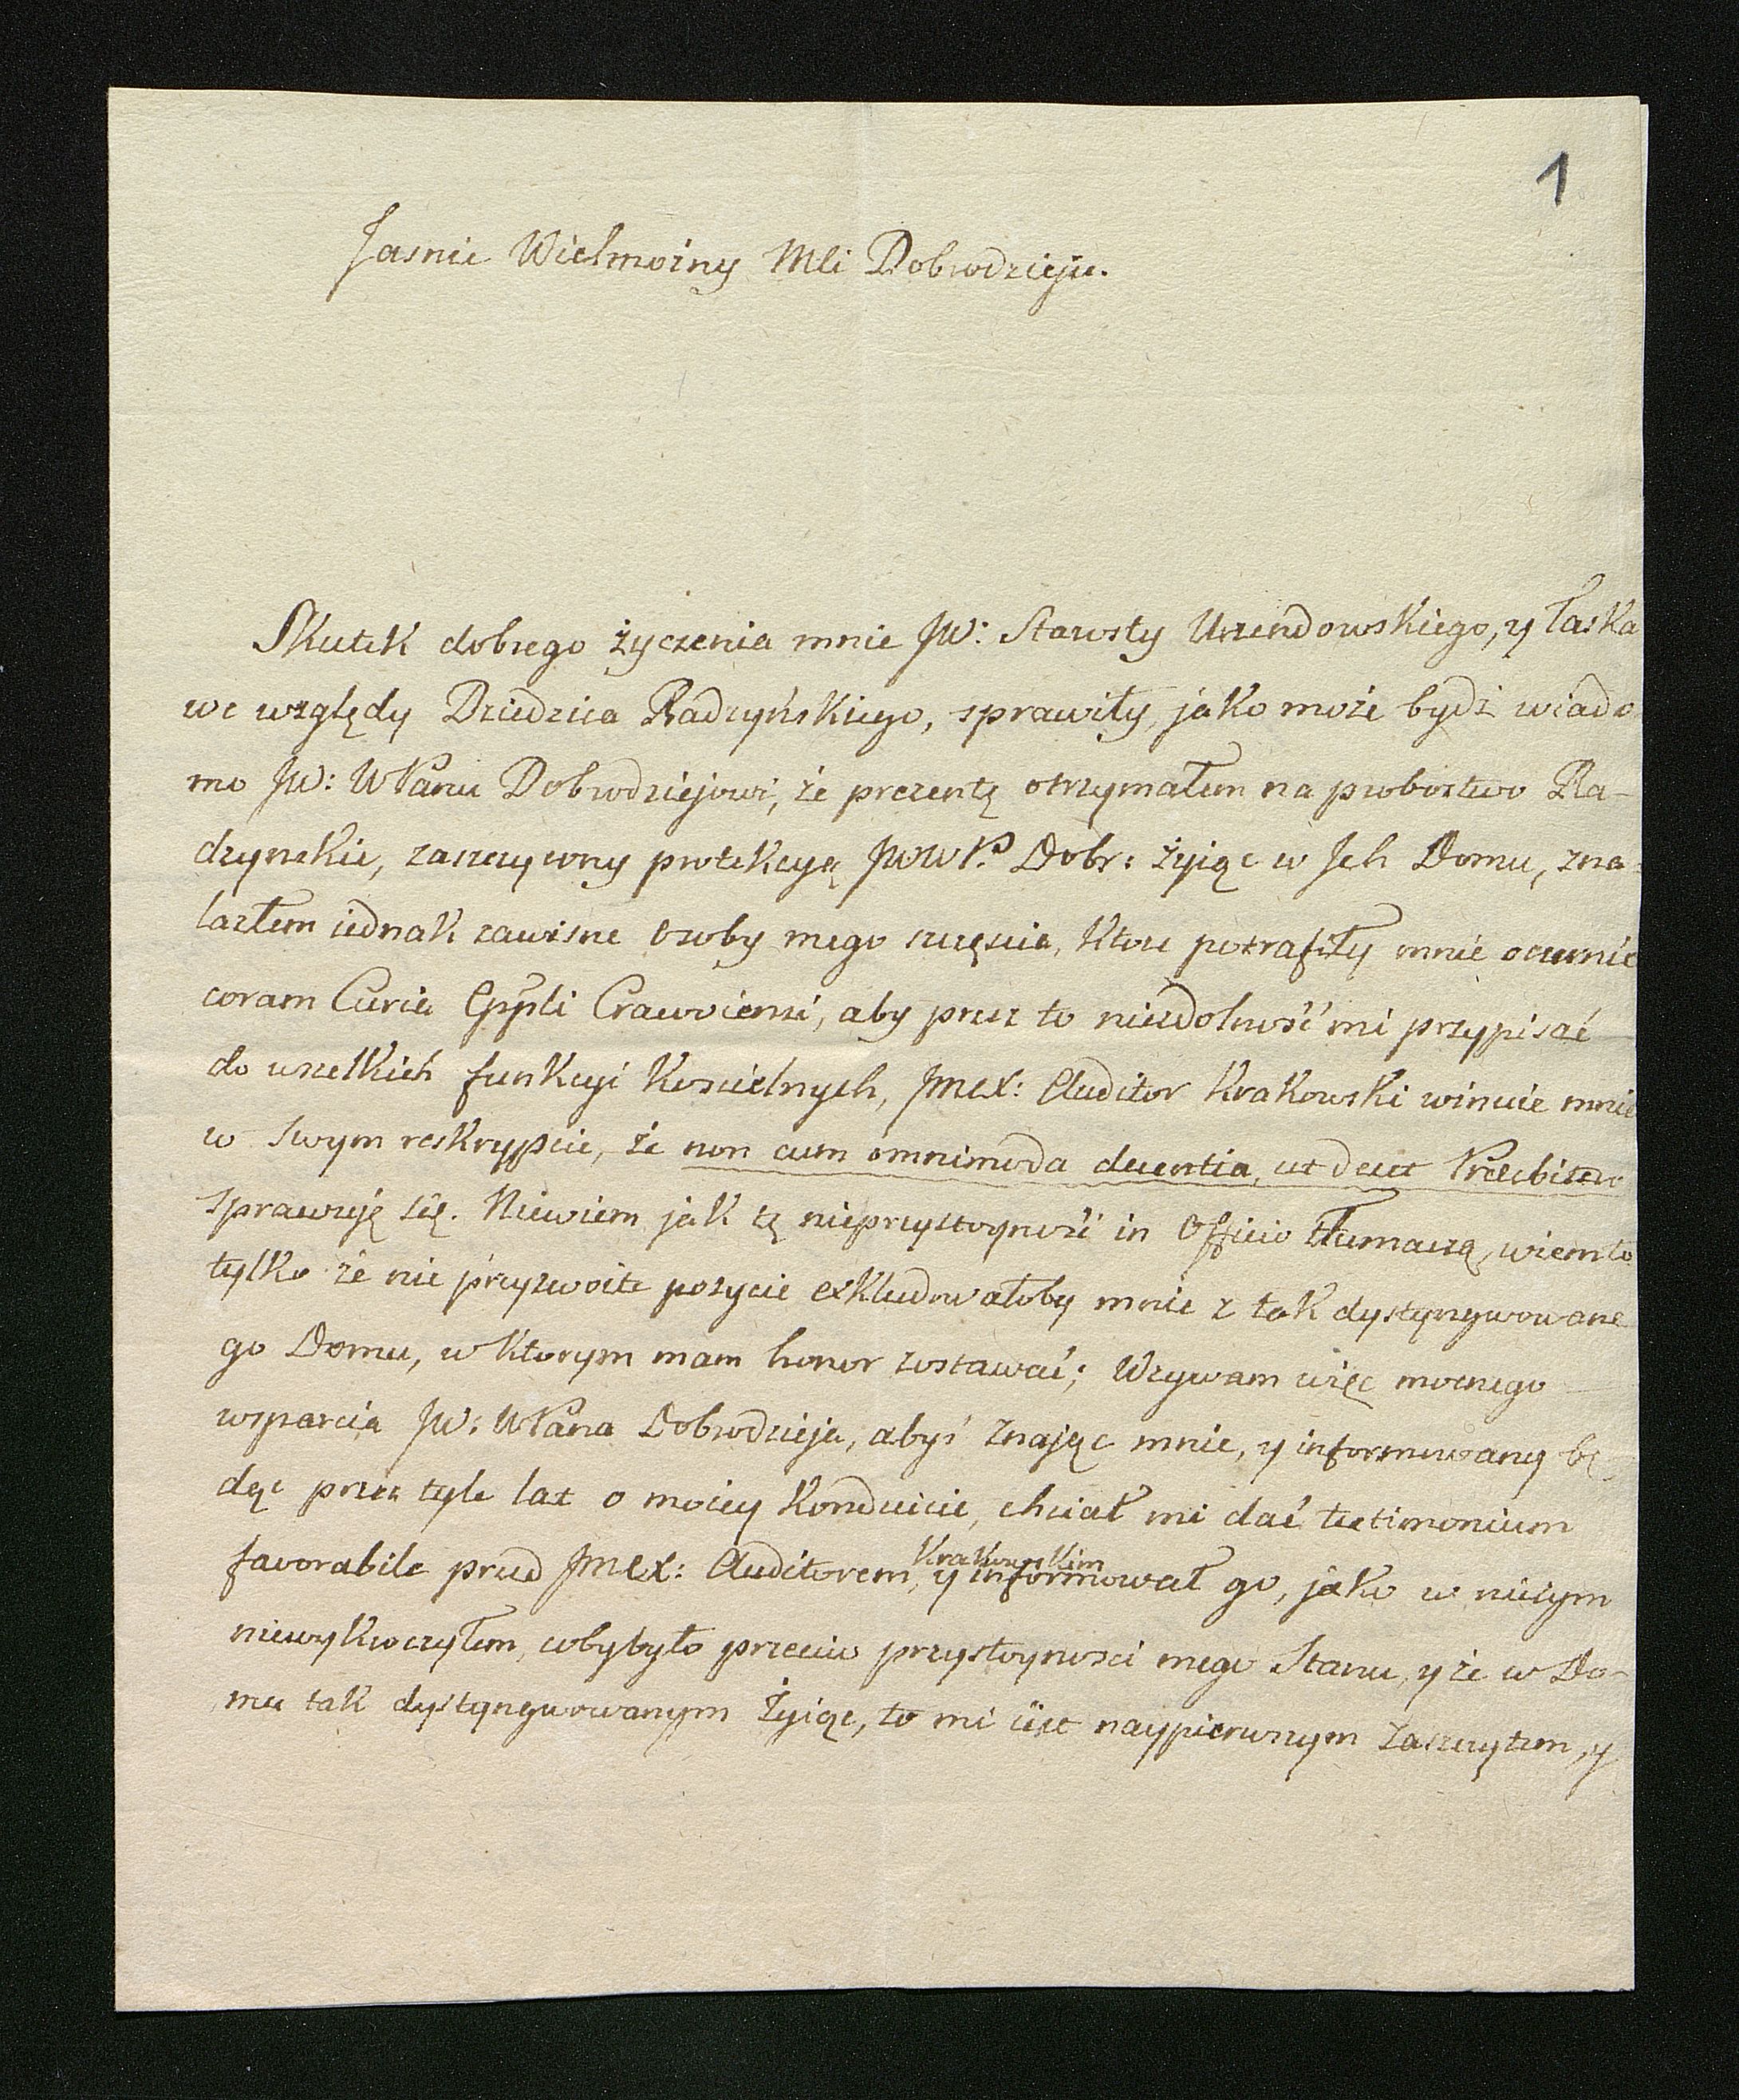 1
Jasnie Wielmożny Mci Dobrodzieju.
Skutek dobrego życzenia mnie JW: Starosty Urzendowskiego, y łaska
we względy Dziedzica Radzyńskiego, sprawiły, jako może bydź wiado
mo JW: WPanu Dobrodziejowi, że prezentę otrzymałem na probostwo Ra-
dzynskie, zaszczycony protekcyą JWWP. Dobr: żyiąc w Jch Domu, zna-
lazłem iednak zawisne Osoby mego szczęscia, ktore potrafiły mnie oczernic
coram Curia Eppli Cracoviensi, aby przez to niezdolność mi przypisać
do wszelkich funkcyi Koscielnych, JMCX: Auditor Krakowski winuie mnie
w Swym reskrypcie, że non cum omnimoda decentia, ut decet Præsbitero
sprawuję się. Niewiem jak tę nieprzystoyność in Officio tłumaczą, wiem to
tylko że nie przyzwoite pożycie exkludowałoby mnie z tak dystyngwowane
go Domu, w ktorym mam honor zostawać; Wzywam więc mocnego
wsparcia JW: WPana Dobrodzieja, abyś znając mnie, y informowany bę
dąc przez tyle lat o moiey Konduicie, chciał mi dać testimonium
favorabile przed JMCX: Auditorem Krakowskim, y informował go, jako w niczym
niewykroczyłem, cobybyło przeciw przystoynosci mego Stanu, y że w Do-
mu tak dystyngwowanym żyiąc, to mi iest naypierwszym zaszczytem, y